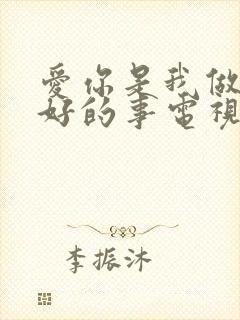 愛你是我做
好的事電視
李振沐